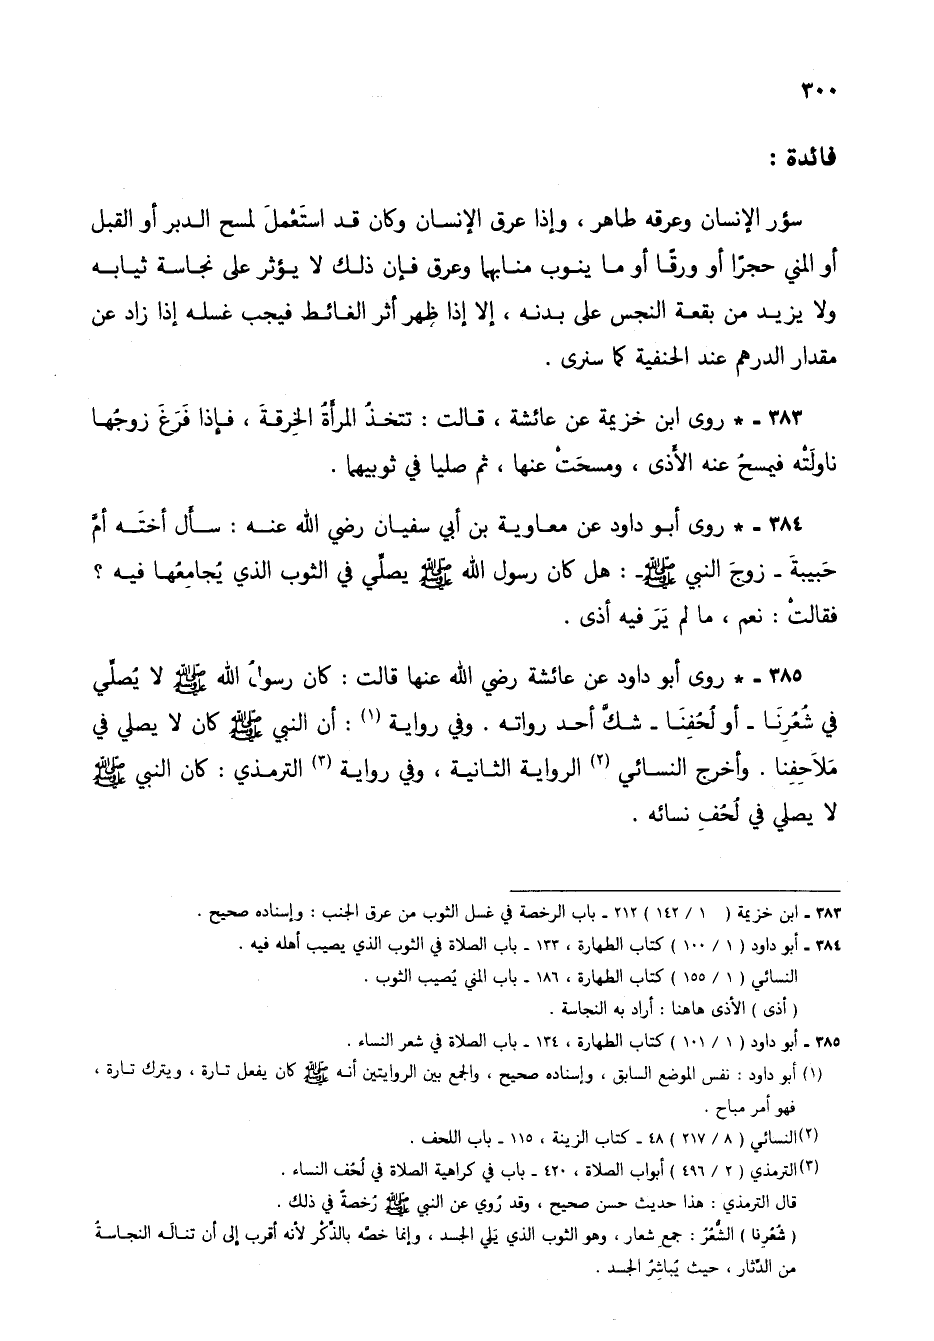 ٣٠٠
فائدة :
سؤر الإنسان وعرقه طاهر ، وإذا عرق الإنسان وكان قد استَعْملَ لمسح الدبر أو القبل
أو المني حجرًا أو ورقًا أو ما ينوب منابها وعرق فإن ذلك لا يؤثر على نجاسة ثيابه
ولا يزيد من بقعة النجس على بدنه ، إلا إذا ظهر أثر الغائط فيجب غسله إذا زاد عن
مقدار الدرهم عند الحنفية كما سنرى .
٣٨٣ - * روى ابن خزيمة عن عائشة ، قالت : تتخذُ المرأَةُ الخِرقةَ ، فإذا فَرَغَ زوجُها
ناولَتْه فيمسحُ عنه الأَذى ، ومسحَتْ عنها ، ثم صليا في ثوبيهما .
٣٨٤ - * روى أبو داود عن معاوية بن أبي سفيان رضي الله عنه : سأَل أختَه أمَّ
حَبيبةَ - زوجَ النبي ﷺ - : هل كان رسول الله ﷺ يصلِّي في الثوب الذي يُجامِعُها فيه ؟
فقالتْ : نعم ، ما لم يَرَ فيه أذى .
٣٨٥ - * روى أبو داود عن عائشة رضي الله عنها قالت : كان رسولُ الله ﷺ لا يُصلِّي
في شُعُرِنَا - أو لُحُفِنَا - شكَّ أحد رواته . وفي رواية (١) : أن النبي ﷺ كان لا يصلي في
مَلاَحِفِنا . وأخرج النسائي (٢) الرواية الثانية ، وفي رواية (٣) الترمذي : كان النبي ﷺ
لا يصلي في لُحُفِ نسائه .
٣٨٣ - ابن خزيمة ( ١ / ١٤٢ ) ٢١٢ - باب الرخصة في غسل الثوب من عرق الجنب : وإسناده صحيح .
٣٨٤ - أبو داود ( ١ / ١٠٠ ) كتاب الطهارة ، ١٣٣ - باب الصلاة في الثوب الذي يصيب أهله فيه .
النسائي ( ١ / ١٥٥ ) كتاب الطهارة ، ١٨٦ - باب المني يُصيب الثوب .
( أذى ) الأذى هاهنا : أراد به النجاسة .
٣٨٥ - أبو داود ( ١ / ١٠١ ) كتاب الطهارة ، ١٣٤ - باب الصلاة في شعر النساء .
(١) أبو داود : نفس الموضع السابق ، وإسناده صحيح ، والجمع بين الروايتين أنه ﷺ كان يفعل تارة ، ويترك تارة ،
فهو أمر مباح .
(٢) النسائي ( ٨ / ٢١٧ ) ٤٨ - كتاب الزينة ، ١١٥ - باب اللحف .
(٣) الترمذي ( ٢ / ٤٩٦ ) أبواب الصلاة ، ٤٢٠ - باب في كراهية الصلاة في لُحُف النساء .
قال الترمذي : هذا حديث حسن صحيح ، وقد رُوي عن النبي ﷺ رُخصةٌ في ذلك .
( شُعُرِنا ) الشُّعُرُ : جمع شعار ، وهو الثوب الذي يَلي الجسد ، وإنما خصَّه بالذِّكْر لأنه أقرب إلى أن تنالَه النجاسةُ
من الدِّثار ، حيث يُباشِرُ الجسد .